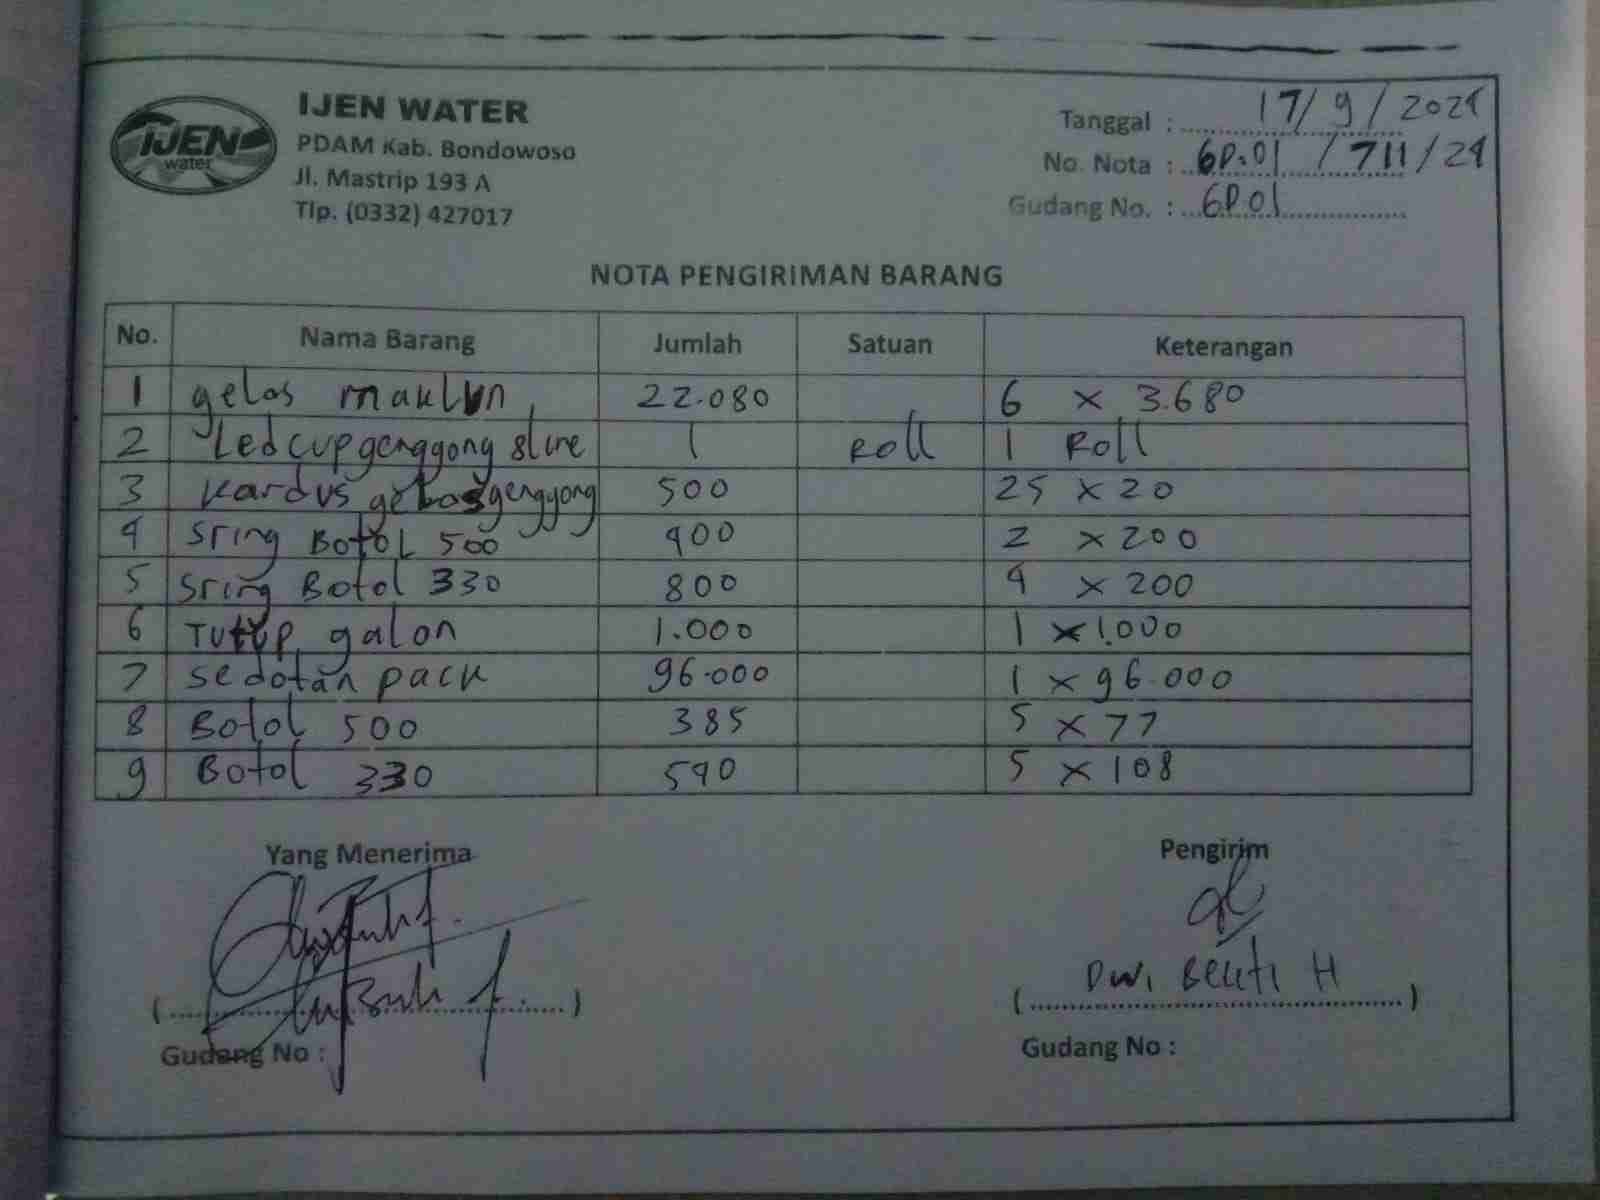 IJEN water
IJEN WATER
PDAM Kab. Bondowoso
Jl. Mastrip 193 A
Tlp. (0332) 427017
Tanggal : 17/9/2024
No. Nota : GD.01 / 711 / 24
Gudang No. : GD01
NOTA PENGIRIMAN BARANG
No. Nama Barang Jumlah Satuan Keterangan
1 gelas maklun 22.080 6 x 3.680
2 Led cup genggong 8 line 1 Roll 1 Roll
3 Kardus gelas genggong 500 25 x 20
4 Sring Botol 500 400 2 x 200
5 Sring Botol 330 800 4 x 200
6 Tutup galon 1.000 1 x 1.000
7 Sedotan pack 96.000 1 x 96.000
8 Botol 500 385 5 x 77
9 Botol 330 540 5 x 108
Yang Menerima
Pengirim
Dwi Bekti H
Gudang No :
Gudang No :